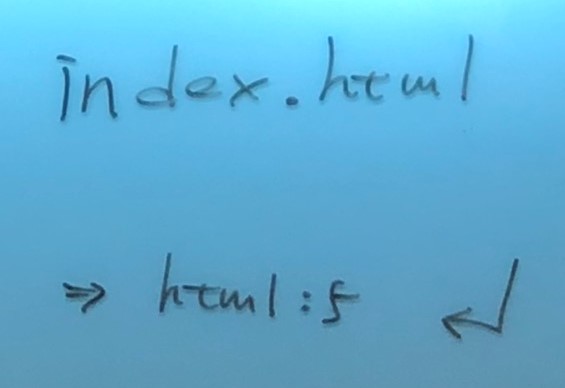 index.html
⇒ html:5 ↵